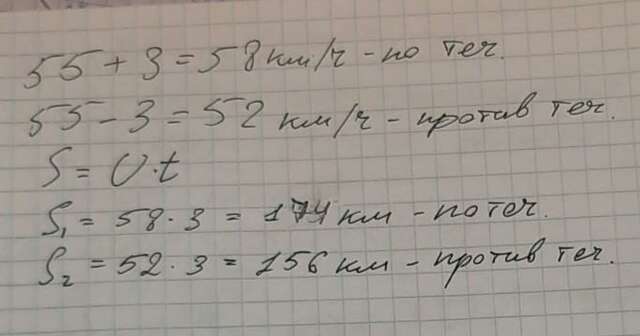 55 + 3 = 58 км/ч - по теч.
55 - 3 = 52 км/ч - против теч.
S = U·t
S₁ = 58 · 3 = 174 км - по теч.
S₂ = 52 · 3 = 156 км - против теч.